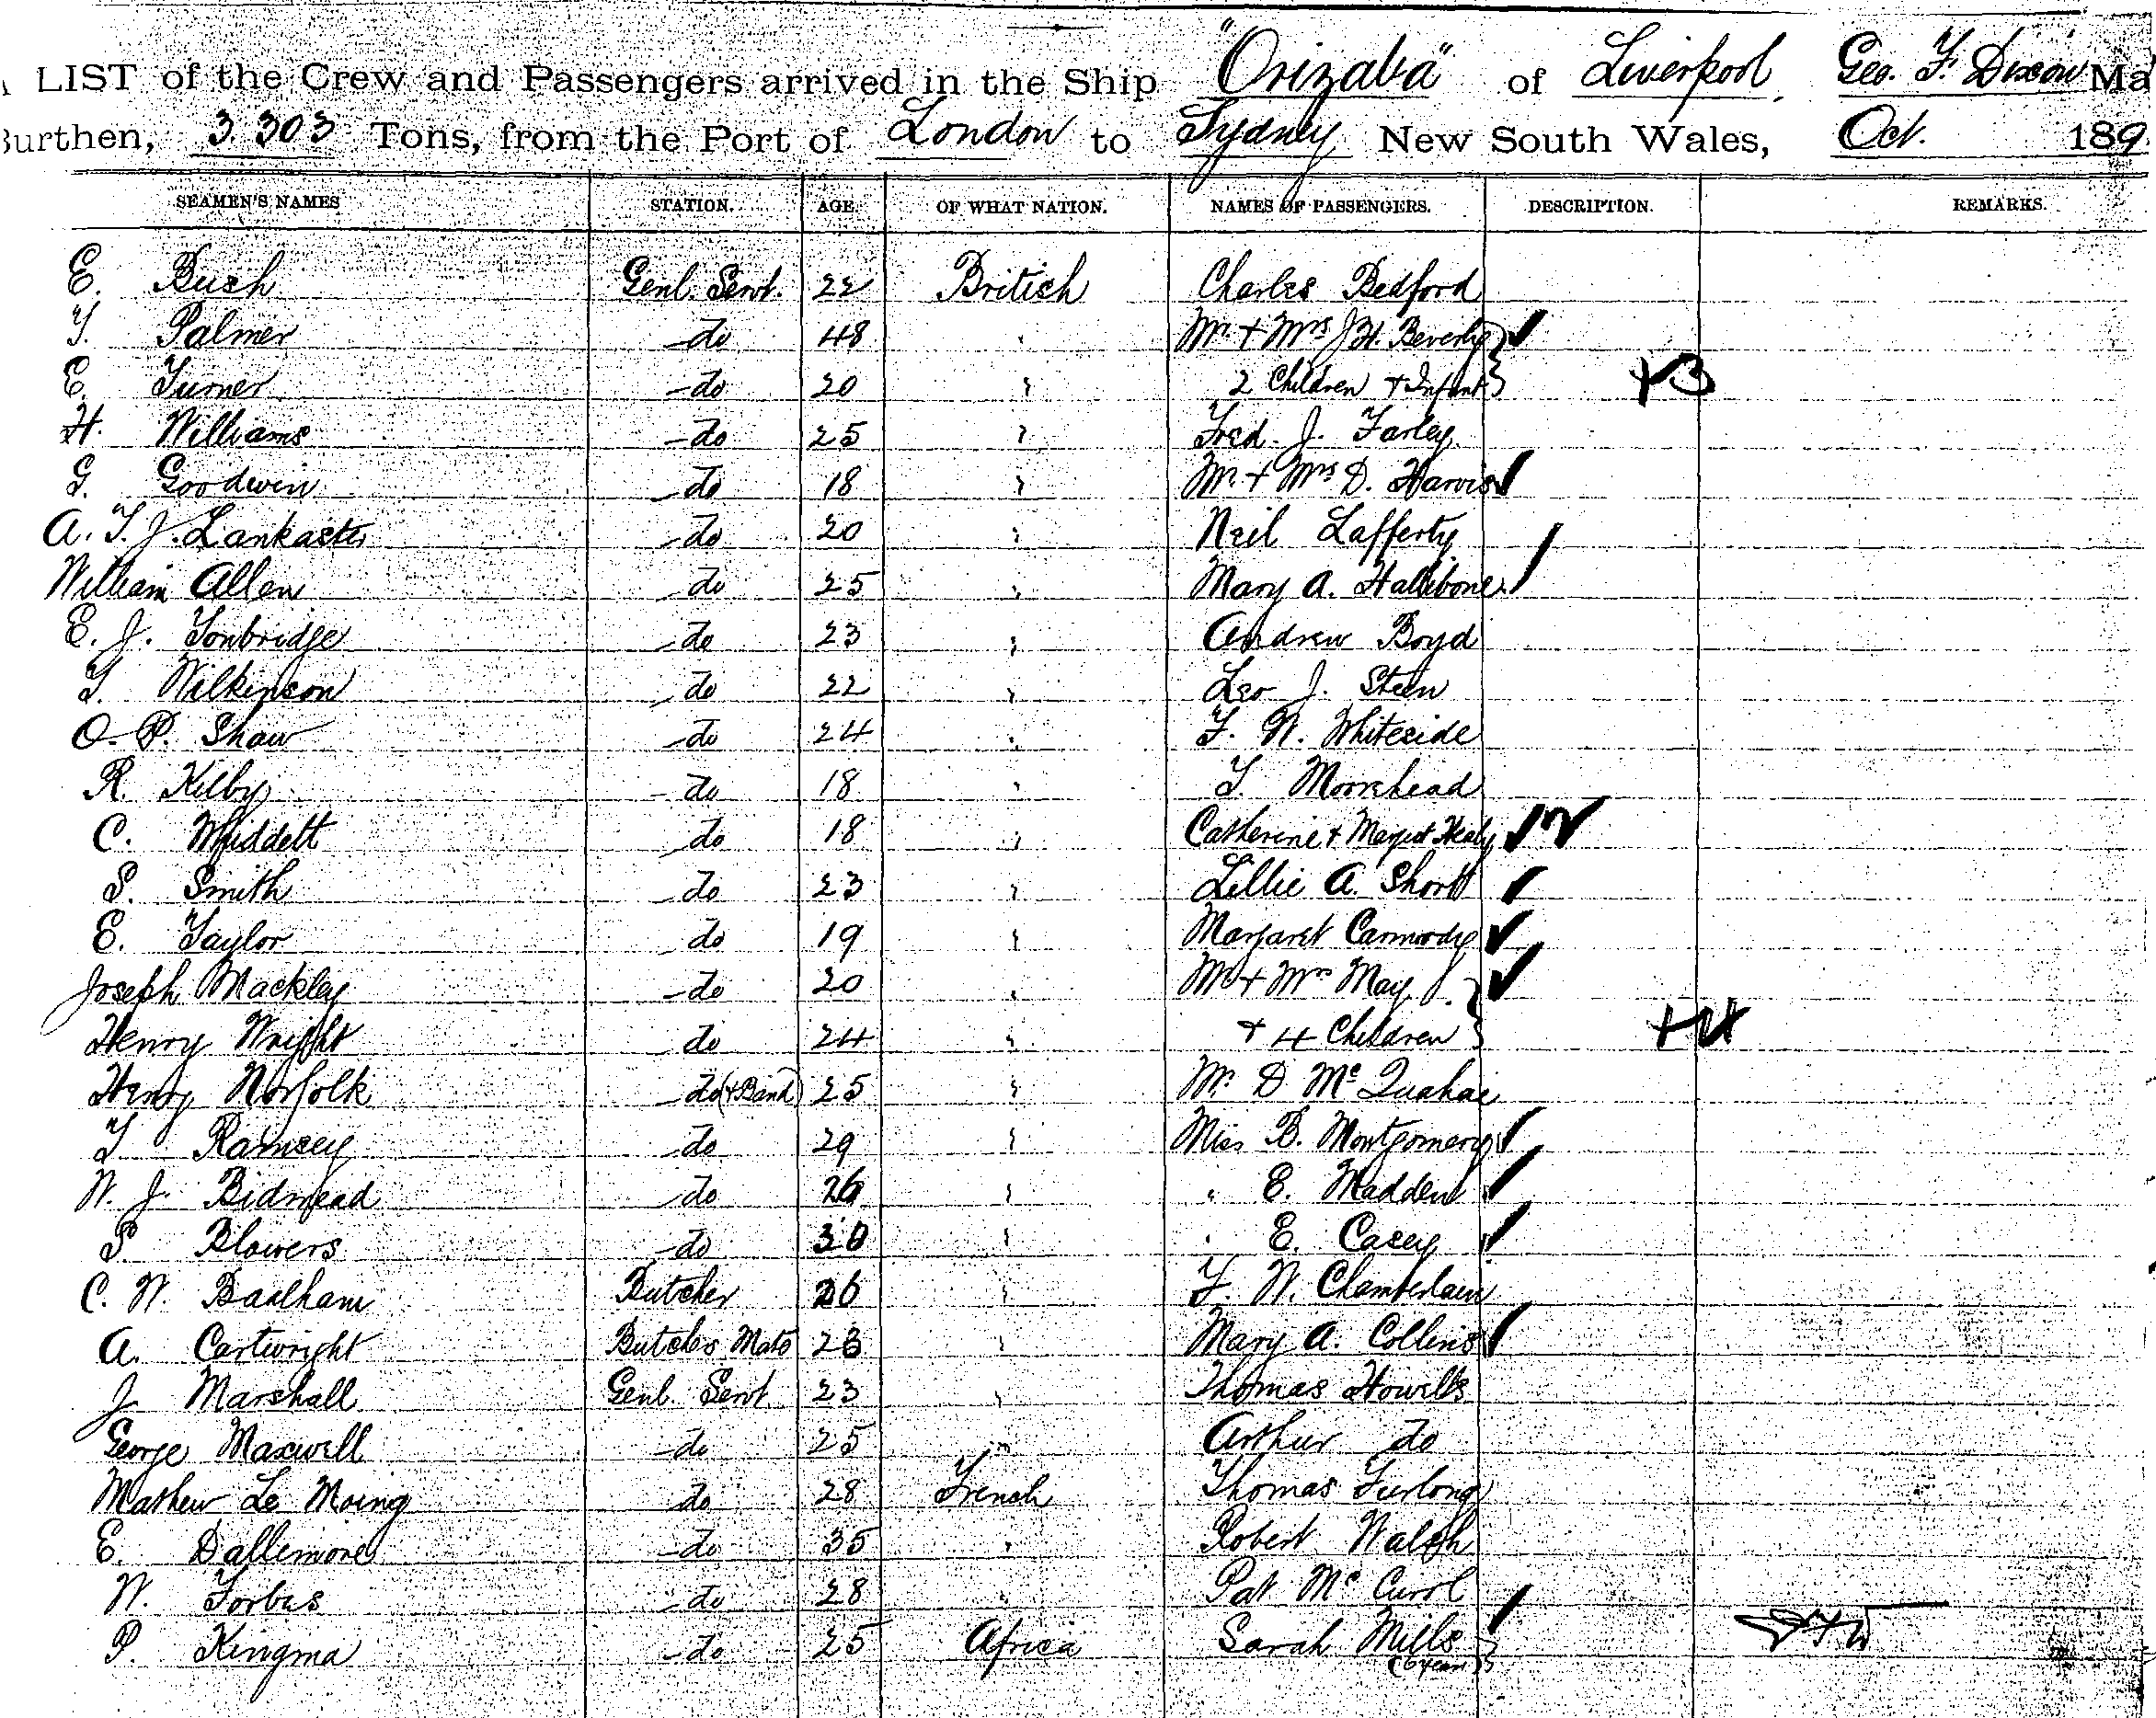 LIST of the Crew and Passengers arrived in the Ship "Orizaba" of Liverpool, Geo. F. Dixon Ma
Burthen, 3.303 Tons, from the Port of London to Sydney New South Wales, Oct. 189
SEAMEN'S NAMES STATION. AGE OF WHAT NATION. NAMES OF PASSENGERS. DESCRIPTION. REMARKS.
E. Bush Genl. Servt. 22 British Charles Bedford
T. Palmer do 48 " Mr. + Mrs J.H. Beverly
E. Turner do 20 " 2 Children + Infant +3
H. Williams do 25 " Fred. J. Farley
G. Goodwin do 18 " Mr. + Mrs D. Harris
A. T. J. Lankaster do 20 " Neil Lafferty
William Allen do 25 " Mary A. Hallibone
E. J. Tonbridge do 23 " Andrew Boyd
T. Wilkinson do 22 " Leo J. Steen
O. P. Shaw do 24 " F. W. Whiteside
R. Kilby do 18 " T Moorehead
C. Whiddett do 18 " Catherine + Margt Healy
S. Smith do 23 " Lillie A. Shortt
E. Taylor do 19 " Margaret Carmody
Joseph Mackley do 20 " Mr + Mrs May
Henry Wright do 24 " + 4 Children +4
Henry Norfolk do (+ Band) 25 " Mr. D Mc Quahae
T Ramsey do 29 " Miss B. Montgomery
W. J. Bidmead do 26 " " E. Madden
S Blowers do 30 " " E. Casey
C. W. Baalham Butcher 26 " F. W. Chamberlain
A. Cartwright Butchers Mate 23 " Mary A. Collins
J. Marshall Genl. Servt 23 " Thomas Howells
George Maxwell do 25 " Arthur do
Mathew Le Moing do 28 French Thomas Furlong
E. Dallimore do 35 " Robert Walsh
W. Forbes do 28 " Pat Mc
P. Kingma do 25 Africa Sarah Mills
(6 years)